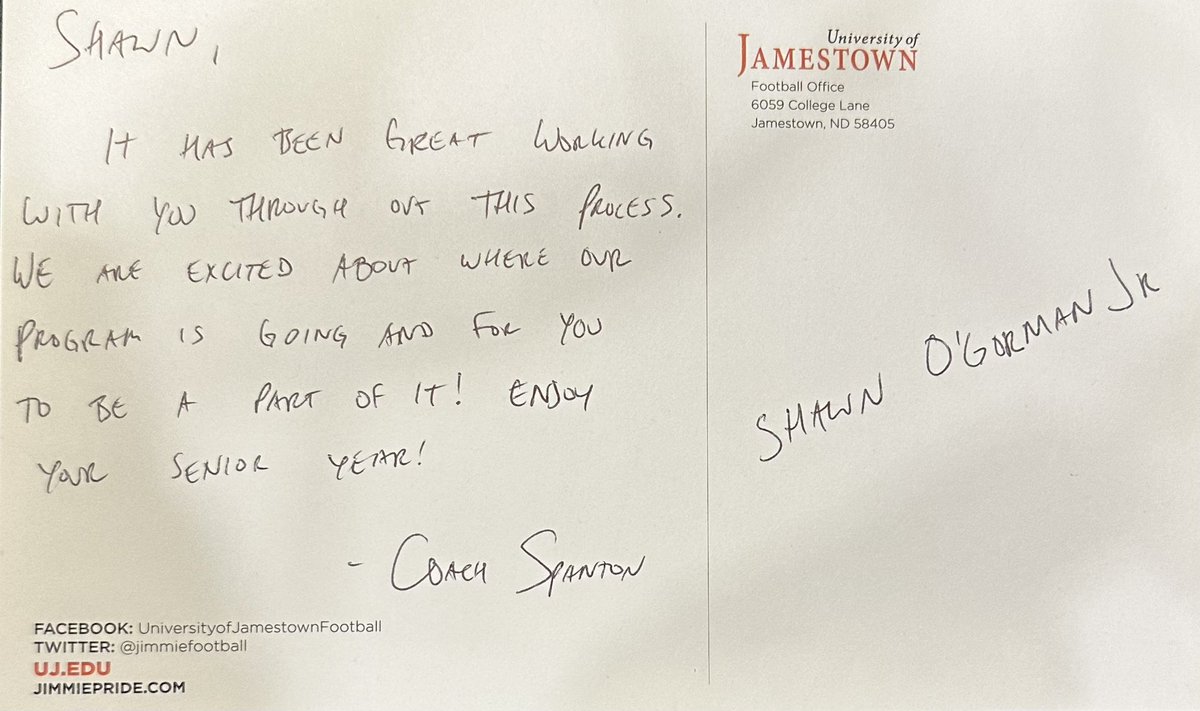 SHAWN,
IT HAS BEEN GREAT WORKING
WITH YOU THROUGH OUT THIS PROCESS.
WE ARE EXCITED ABOUT WHERE OUR
PROGRAM IS GOING AND FOR YOU
TO BE A PART OF IT! ENJOY
YOUR SENIOR YEAR!
- COACH SPANTON
FACEBOOK: UniversityofJamestownFootball
TWITTER: @jimmiefootball
UJ.EDU
JIMMIEPRIDE.COM
University of
JAMESTOWN
Football Office
6059 College Lane
Jamestown, ND 58405
SHAWN O'GORMAN JR